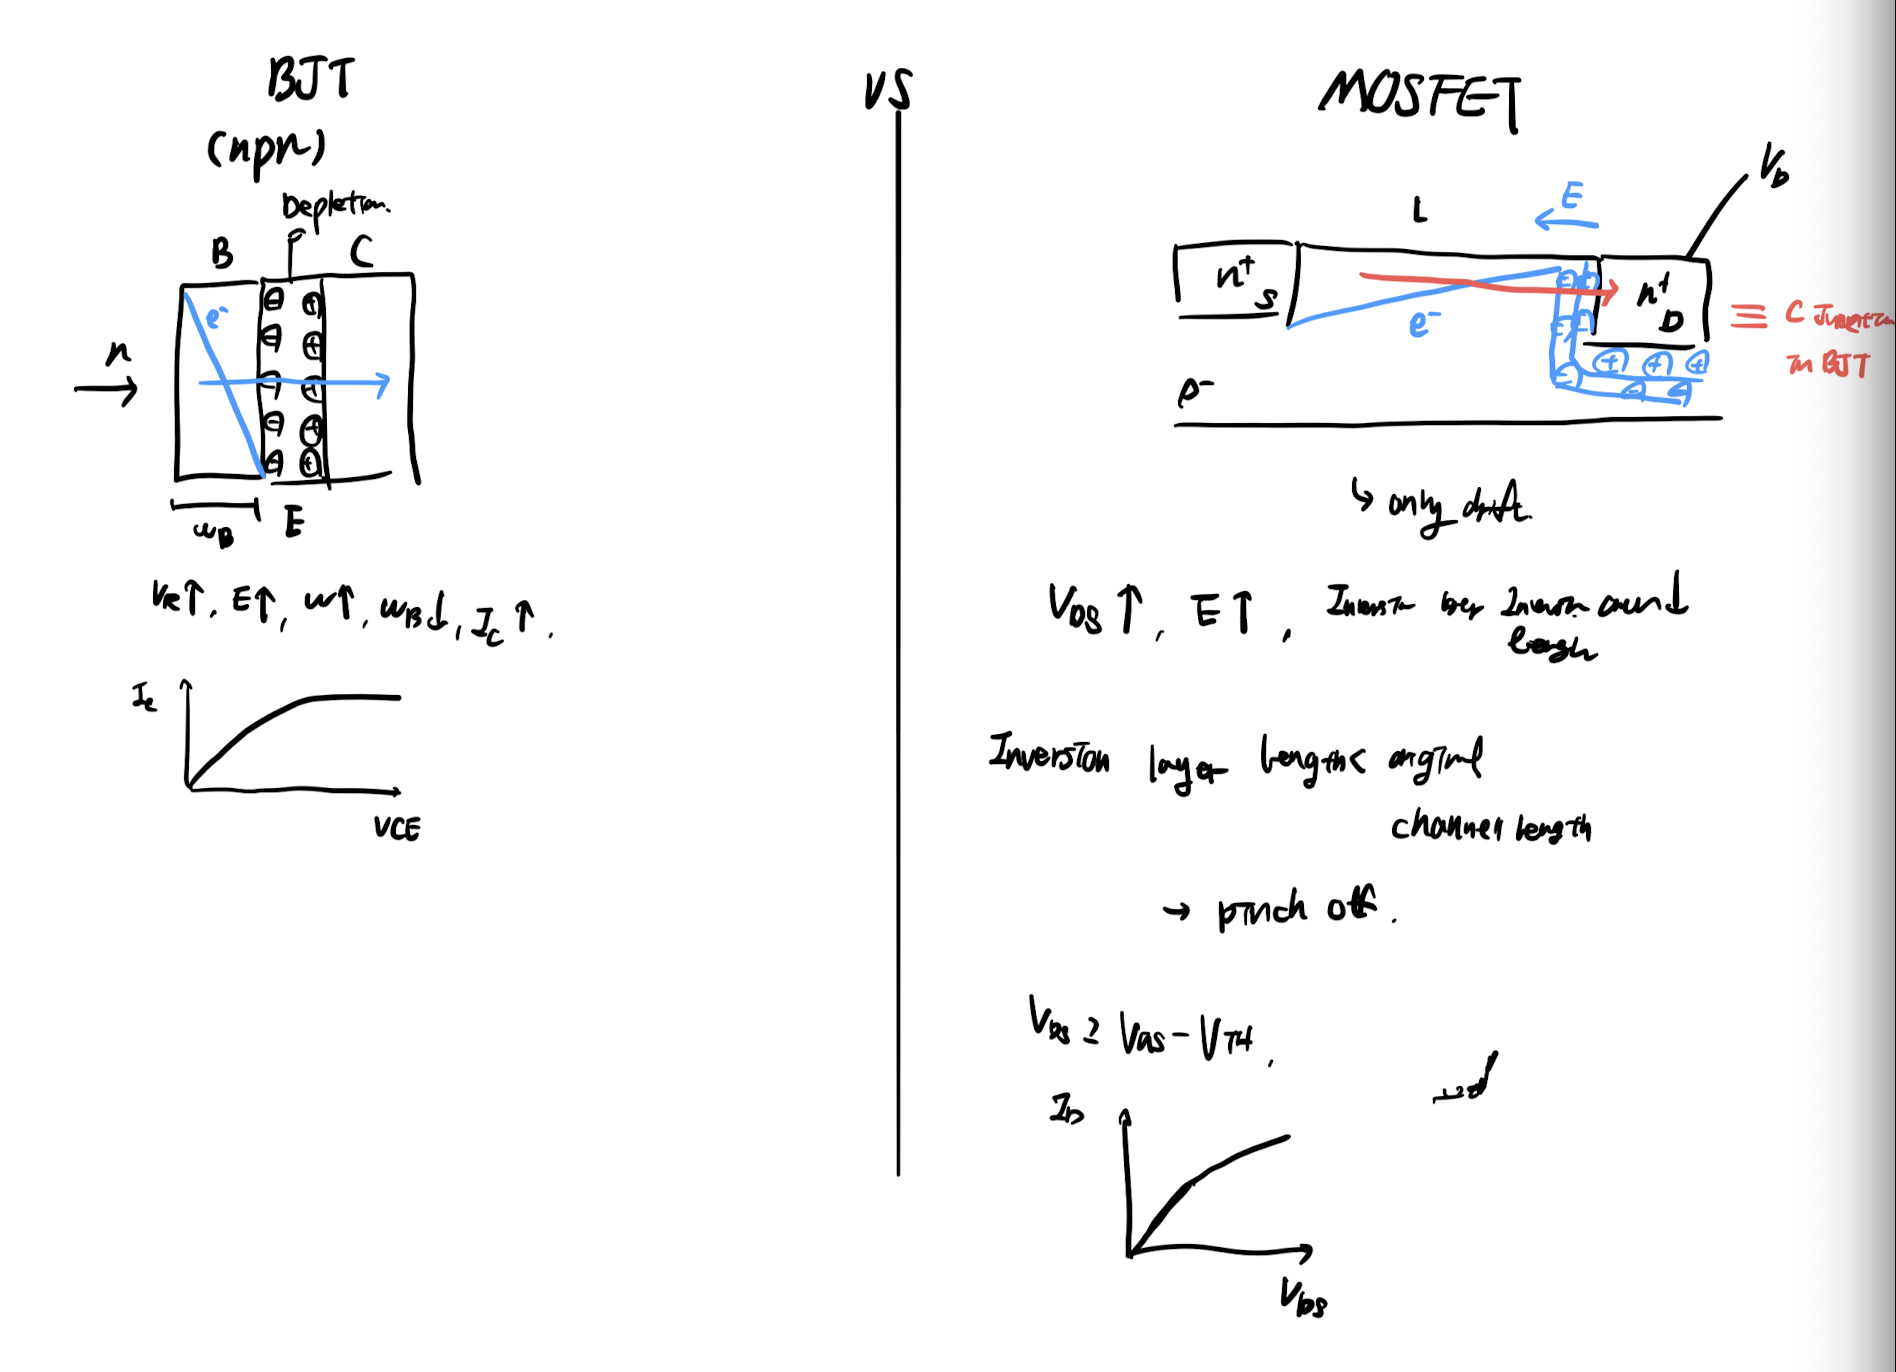 BJT
(npn)
Depletion.
B
C
e-
n
WB
E
VR↑, E↑, W↑, WB↓, IC↑.
Ic
VCE
VS
MOSFET
VD
E
L
n+
S
n+
D
e-
≡ C Junction
in BJT
p-
↳ only drift.
VDS↑, E↑,
length
Inversion layer length < original
channel length
→ pinch off.
VDS ≥ VGS - VTH.
ID
VDS